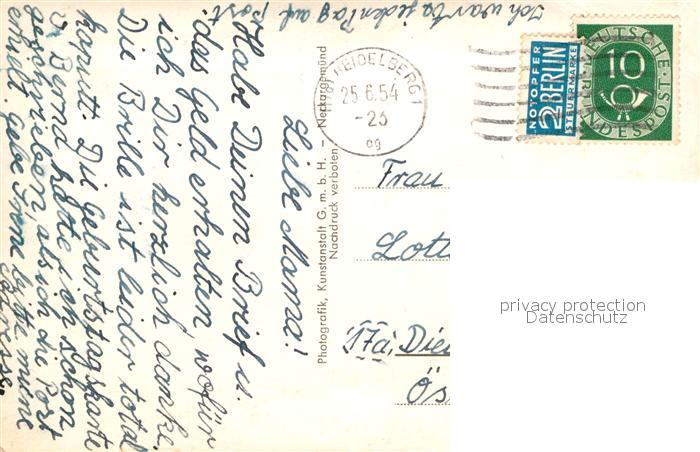 Liebe Mama!
Habe Deinen Brief u.
das Geld erhalten, wofür
ich Dir herzlich danke.
Die Brille ist leider total
kaputt. Die Geburtstagskarte
v. Bernd hatte ich schon
geschrieben, als ich die Post
erhielt. gebe Irene bitte meine
Adresse.
Ich war ja jeden Tag auf Post
Photografik, Kunstanstalt G. m. b. H. – Neckargemünd
Nachdruck verboten
HEIDELBERG 1
25.6.54
-23
ag
NOTOPFER
2 BERLIN
STEUERMARKE
DEUTSCHE
10
BUNDESPOST
Frau
Lott
17a, Die
Ös
privacy protection
Datenschutz